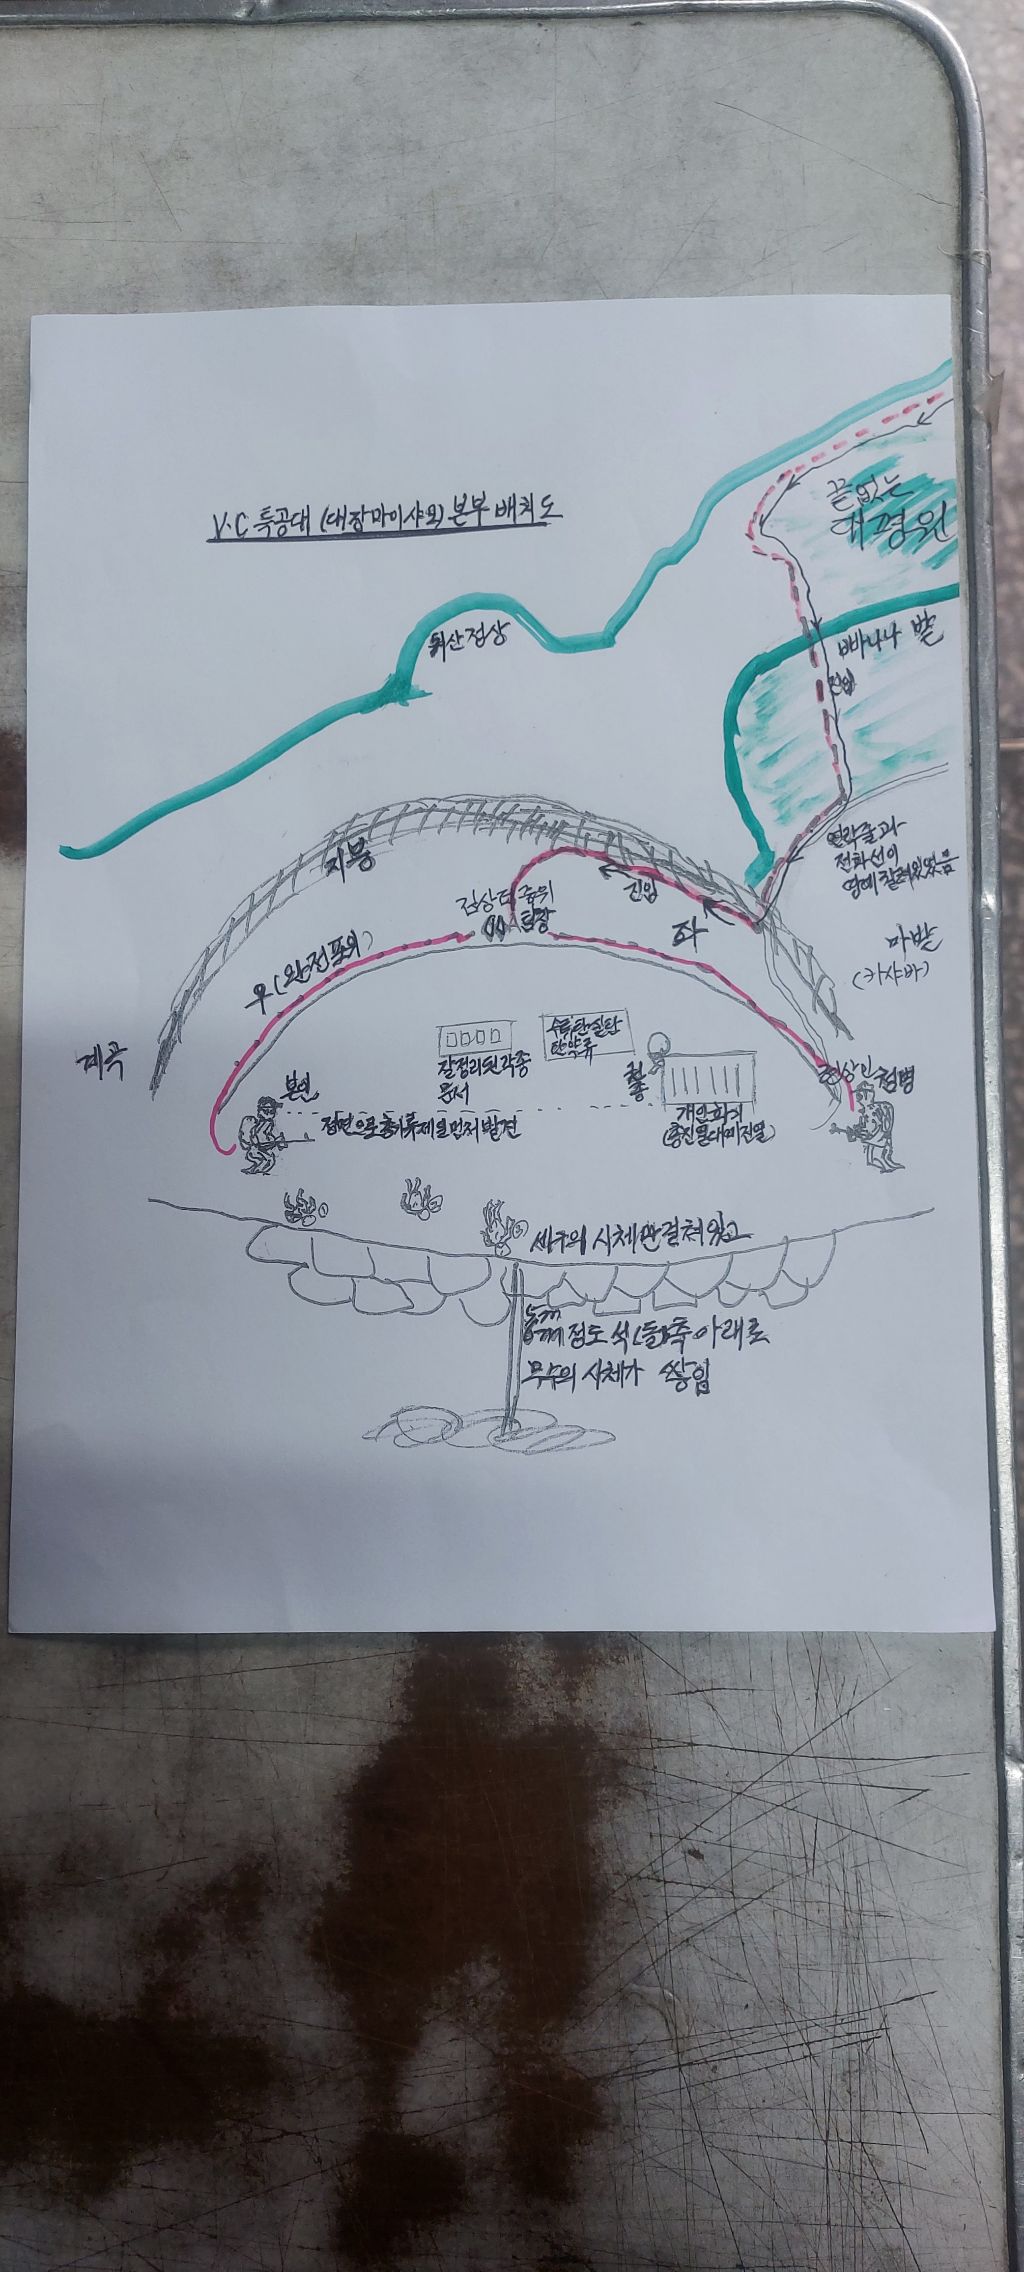 V.C 특공대 (대장마이샤모) 본부 배치도
끝없는
대평원
산정상
빠나나 밭
진입
연락줄과
전화선이
땅에 깔려있었음
마밭
(카샤바)
지붕
진입
좌
중위
팀장
우(완전포위)
계곡
수류탄 실탄
탄약류
잘정리된각종
문서
본인
정면으로총기류제일먼저발견
개인화기
(총진열대에진열)
첨병
세구의 시체만걸쳐있고
정도 석(돌)축아래로
무수의 시체가 쌓임